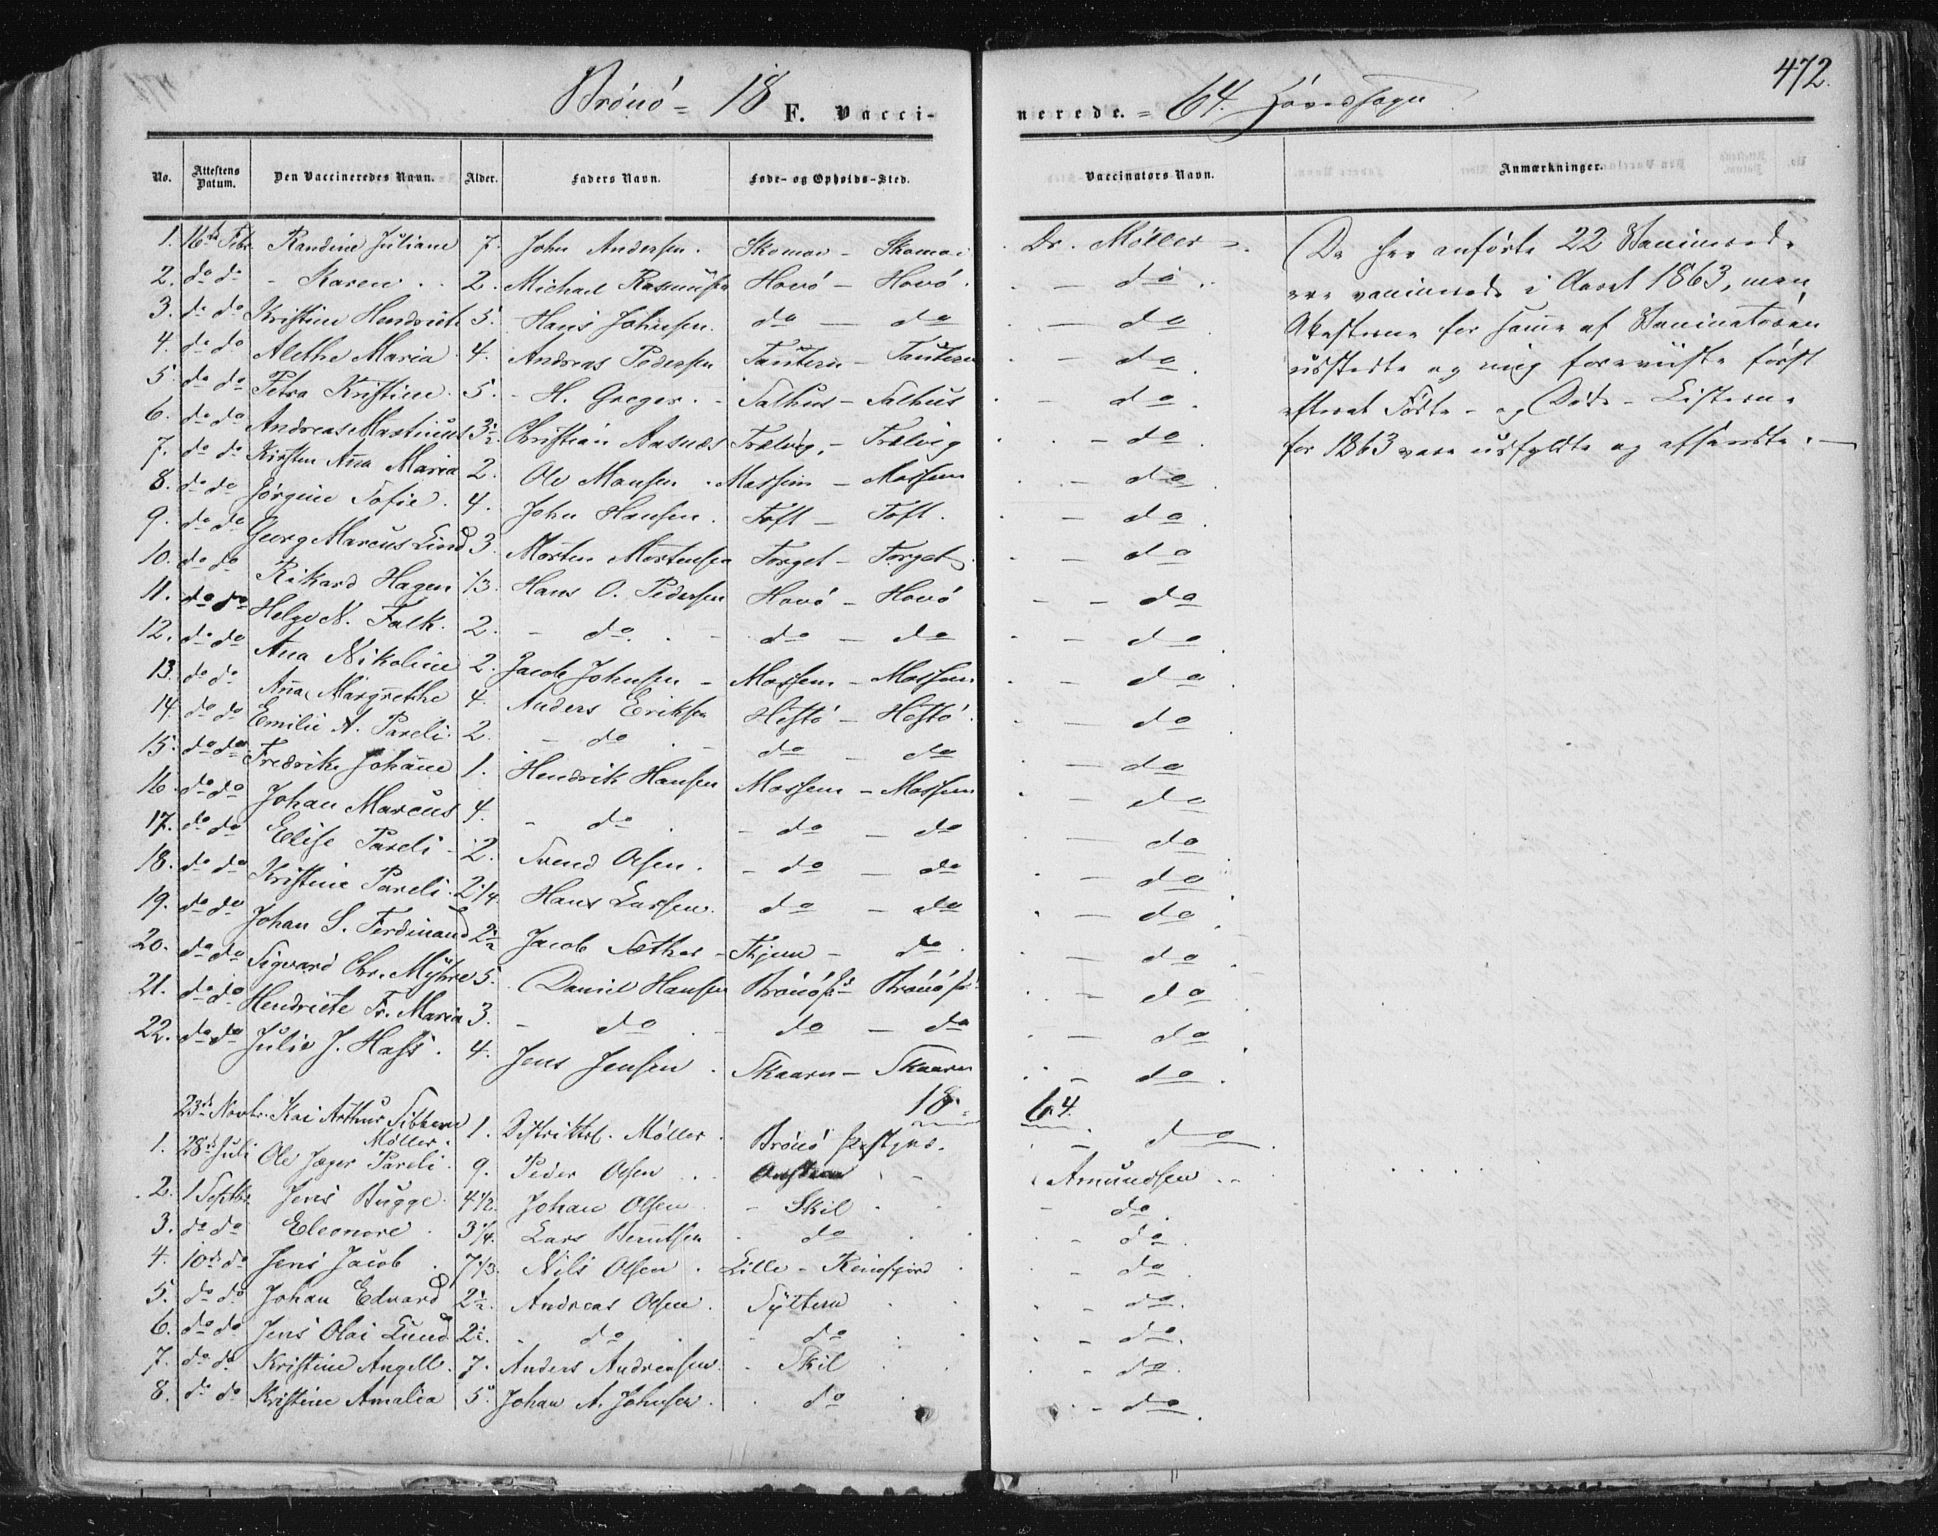 472.
Brönö = 18 F. Vacci- nerede. = 64. Hovedsogn
No. Attestens Datum. Den Vaccineredes Navn. Alder. Faders Navn. Føde- og Opholds-Sted. Vaccinators Navn. Anmærkninger.
1. 16de Febr. Randine Juliane 7. John Andersen. Skomo - Skomo Dr. Møller
2. do do - Karen 2. Michael Rasmusen Hovö - Hovö. do
3. do do Kristine Hendriette 5. Hans Johnsen. do - do do
4. do do Alethe Maria 4. Andreas Pedersen do
5. do do Petra Kristine 5. H. Greger. Salhus - Salhus do
6. do do Andreas Martinus 3½ Christian Aasnæs Trælvig - Trælvig do
7. do do Kirsten Ana Maria 2. Ole Monsen Mossem - Mossem do
8. do do Jørgine Sofie. 4. John Hansen. Toft - Toft. do
9. do do Georg Marcus Lind 3. Morten Mortensen Torget - Torget do
10. do do Rikard Hagen 1/3. Hans O. Pedersen Hovö - Hovö do
11. do do Helge N. Falk. 2. - do - do - do do
12. do do Ana Nikoline 2. Jacob Johnsen - Mossem - Mossem do
13. do do Ana Margrethe 4. Anders Eriksen Hestö - Hestö. do
14. do do Emilie A. Pareli. 2. - do - do - do do
15. do do Fredrikke Johane 1. Hendrik Hansen Mossem - Mossem do
16. do do Johan Marcus 4. - do - do - do do
17. do do Elise Pareli - 2. Svend Olsen. - do - do do
18. do do Kristine Pareli. 2¼. Hans Larsen. do - do do
19. do do Johan S. Ferdinand 2½ Jacob Sæther - Tilrem - do do
20. do do Sigvard Chr. Myhre 5. Daniel Hansen do
21. do do Hendriete Fr. Maria 3. - do - do - do do
22. do do Julie J. Hass. 4. Jens Jensen. Skaarn - Skaarn do
De her anførte 22 Vaccinerede
ere vaccinerede i Aaret 1863, men
Attesterne for samme af Vaccinatoren
udstedte og mig foreviiste først
efterat Føste - og Døde - Listerne
for 1863 vare udfyldte og afsendte. -
18 64.
23de Novbr. Kai Arthur Sibbern Møller. 1. Distriktsl. Møller. Brönö Prestgrd. - do
1. 28de Juli Ole Jæger Pareli. 9. Peder Olsen Amundsen
2. 1 Septbr. Jens Bugge. 4½. Johan Olsen - Skil do
3. do do Eleonore 3¼. Lars Berntsen do do
4. 10de do Jens Jacob 7 1/3. Nils Olsen. Lille - Reinsfjord do
5. do do Johan Edvard 2½. Andreas Olsen. do
6. do do Jens Olai Lund - do do do
7. do do Kristine Angell. 7. Anders Andreasen. - Skil do
8. do do Kristine Amalia 5 Johan A. Johnsen. do do